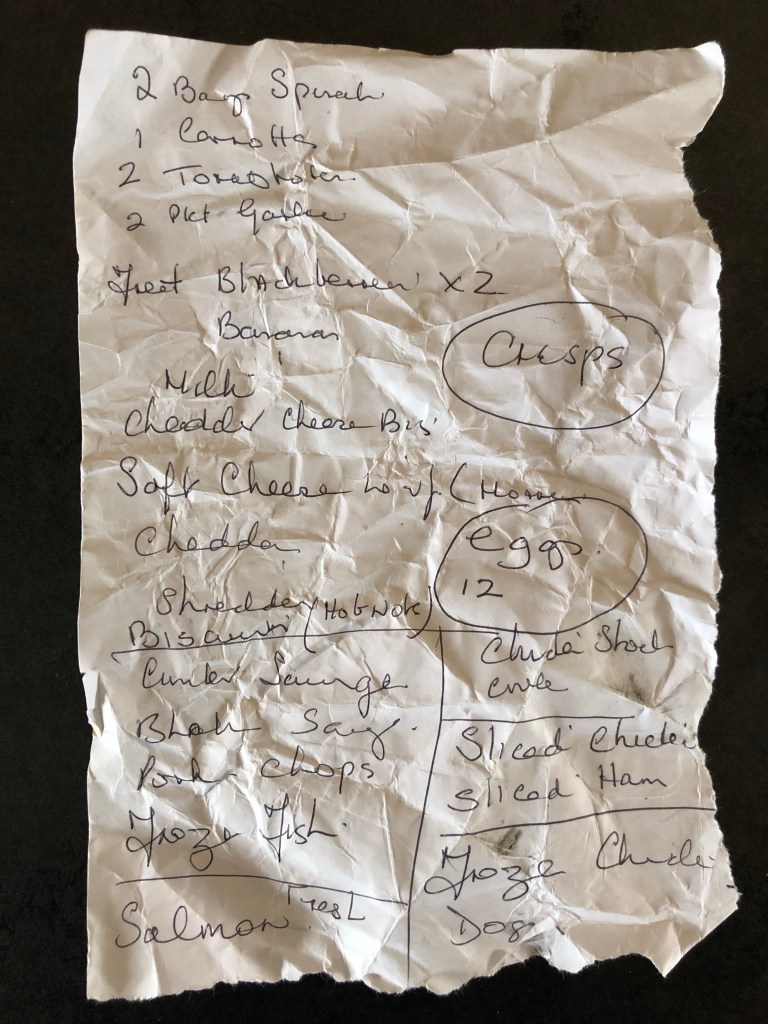 2 Bags Spinach
1 Carrotts
2 Tomatoes
2 Pkt Garlic
Fruit Blackberries X2
Bananas
CRISPS
Milk
Chedder Cheese Bis
Soft Cheese
Chedda
eggs
12
Shredded (Hob Nob)
Biscuits
Cumber Sausage
Black Saug.
Pork Chops
Froze Fish.
Salmon Fresh
Chicke Stock
cube
Sliced Chicke
Sliced Ham
Froze Chicke
Dog